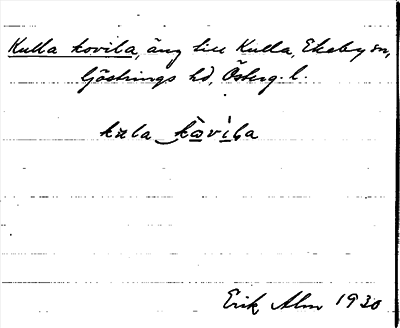 Kulla kovila, äng till Kulla, Ekeby sn,
Göstrings hd, Österg. l.
kula kàvìla
Erik Alm 1930